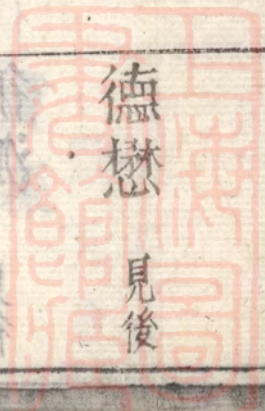 德懋 見後